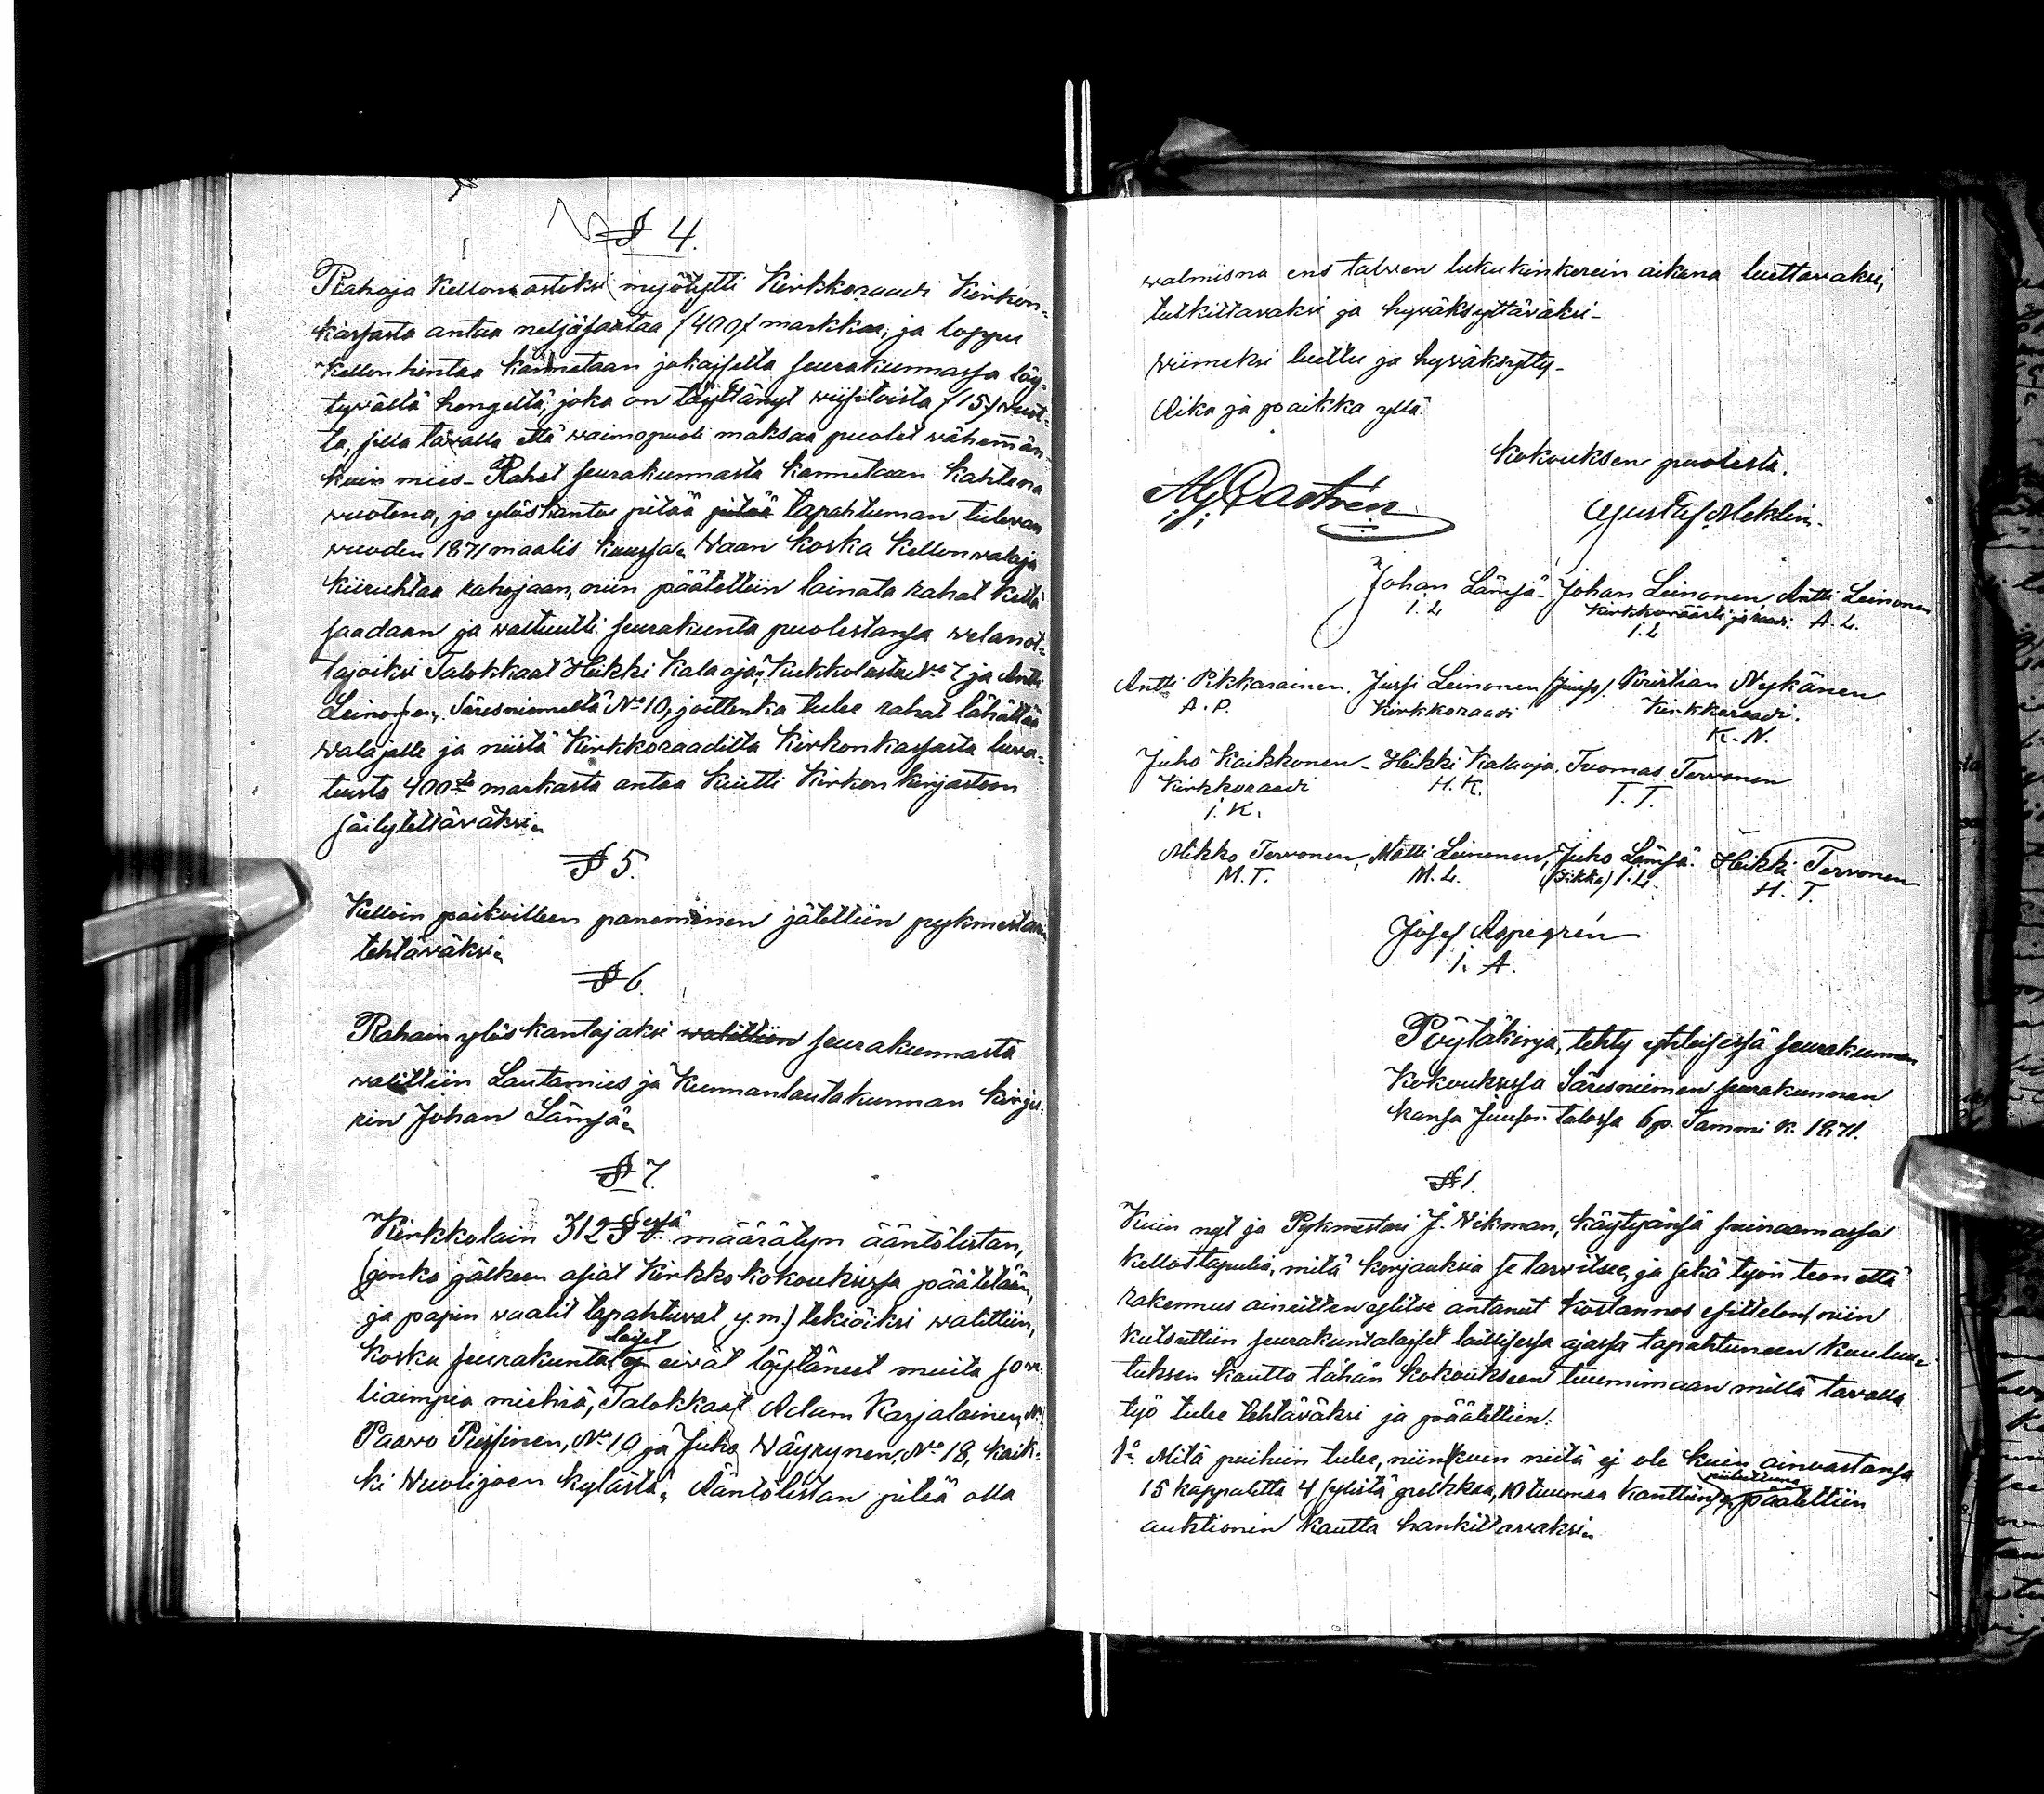 § 4.
Rahoja Kellon ostoksi myötytti Kirkkoraadi Kirkon-
kassasta antaa neljäsataa /400/ markkaa; ja loppu
Kellon hintaa kannetaan jokaiselta seurakunnassa löy-
tyvältä hengeltä, joka on täyttänyt viisitoista /15/ wuot-
ta, sillä tavalla että waimopuoli maksaa puolet wähemän
kuin mies_ Rahat seurakunnasta kannetaan kahtena
wuotena, ja ylöskanto pitää pitää tapahtuman tulewan
wuoden 1871 maalis kuussa. Waan koska Kellonwalaja
kiiruhtaa rahojaan, niin päätettiin lainata rahat keltä
saadaan ja waltuutti seurakunta puolestansa welanot-
tajoiksi Talokkaat Heikki Kalaoja, Kukkolasta No 7 ja Antti
Leinosen, Säresniemeltä No 10, joittenka tulee rahat lähättää
walajalle ja niistä Kirkkoraadilta Kirkonkassasta luwa-
tuista 400sta markasta antaa kuitti Kirkon kirjastoon
säilytettäwäksi.
§ 5.
Kelloin paikoilleen paneminen jätettiin pykmestarin
tehtäwäksi.
§ 6.
Rahain ylöskantajaksi walittiin seurakunnasta
walittiin Lautamies ja Kunnanlautakunnan kirju-
rin Johan Lämsä.
§ 7.
Kirkkolain 312 §:ssä määrätyn ääntölistan,
(jonka jälkeen asiat Kirkkokokouksissa päätetään,
ja papin waalit tapahtuwat y.m.) tekiöiksi walittiin,
laiset
koska seurakunta ej eiwät löytäneet muita sowe-
liaimpia miehiä, Talokkaat Adam Karjalainen, No
Paawo Pursinen, No 10 ja Juho Wäyrynen, No 18, kaik-
ki Wuolijoen kylästä. Ääntölistan pitää olla
walmisna ens talwen lukukinkerein aikana luettawaksi,
tutkittawaksi ja hywäksyttäwäksi_
Wiimeksi luettu ja hywäksytty_
Aika ja paikka yllä
Kokouksen puolesta.
AG Castrén
Gustaf Meklin.
Johan Lämsä_ Johan Leinonen Antti Leinonen
I. L. Kirkkowäärti ja raadi. A. L.
I. L.
Antti Pikkarainen. Jussi Leinonen (Juuso). Kristian Nykänen
A. P. Kirkkoraadi Kirkkoraadi.
K. N.
Juho Kaikkonen_ Heikki Kalaoja. Tuomas Terwonen
Kirkkoraadi H. K. T. T.
I. K.
Mikko Terwonen, Matti Leinonen, Juho Lämsä. Heikki Terwonen
M. T. M. L. (Sikka) I. L. H. T.
Josef Aspegrén
I. A.
Pöytäkirja, tehty yhteisessä seurakunnan
Kokouksissa Säresniemen seurakunnan
kansa Juuson talossa 6 p. Tammi k. 1871.
§ 1.
Kuin nyt ja Pykmestari J. Wikman, käytyänsä suinaamassa
Kellotapulia, mitä korjauksia se tarwitsee, ja sekä työn teon että
rakennus aineitten ylitse antanut kostannos esittelon, niin
kutsuttiin seurakuntalaiset laillisessa ajassa tapahtuneen kuulu-
tuksen kautta tähän kokoukseen tuumimaan millä tawalla
työ tulee tehtäwäksi ja päätettiin:
1o Mitä puihin tulee, niinkuin niitä ej ole kuin ainoastansa
piiluttuna
15 kappaletta 4 sylistä pelkkaa, 10 tuumaa kanttiinsa, päätettiin
auktionin kautta hankittawaksi.